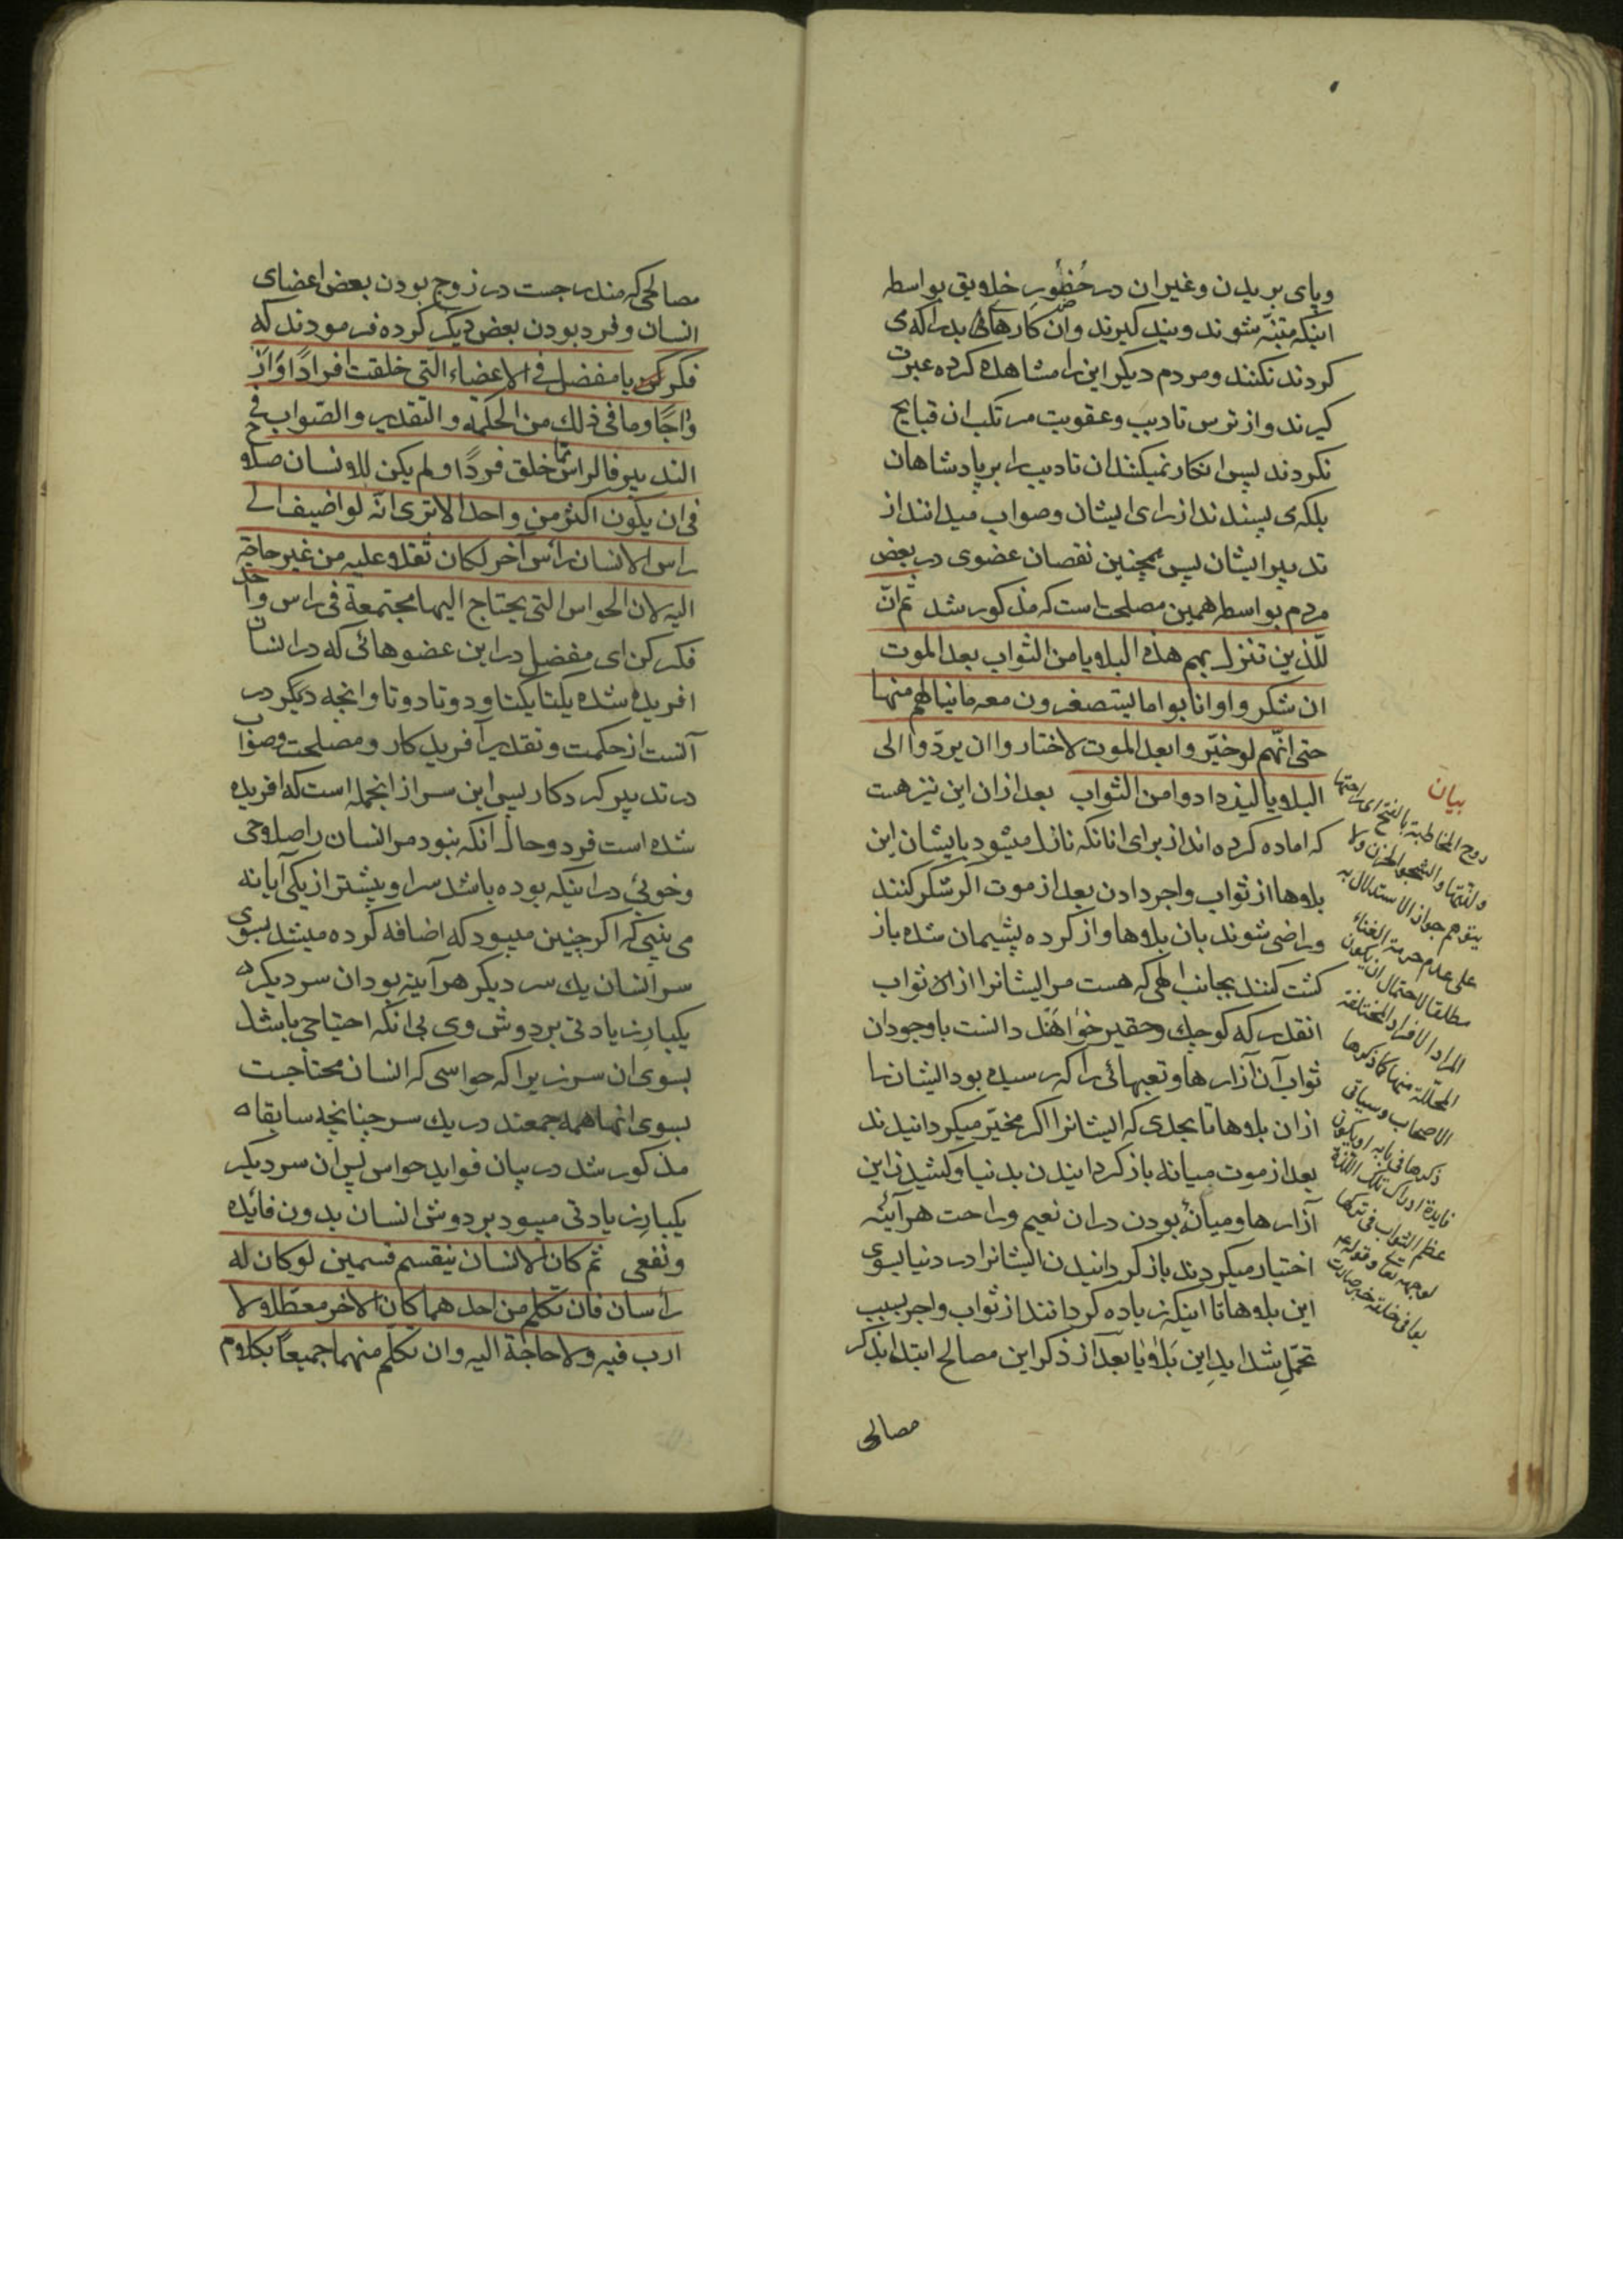 وپای بریدن وغیران در حُضُورِ خلایق بواسطه
اینکه متنبّه شوند وپند کیرند وان کارهائی بدرا که می
کردند نکنند ومردم دیکر این را مشاهده کرده عبرت
کیرند واز ترس تادیب وعقوبت مرتکب ان قبایح
نکردند پس انکار نمیکنند ان تادیب را بر پادشاهان
بلکه می پسندند از رای ایشان وصواب میدانند از
تدبیر ایشان پس همچنین نقصان عضوی در بعض
مردم بواسطه همین مصلحت است که مذکور شد ثم انّ
للّذین تنزل بهم هذه البلایا من الثواب بعد الموت
ان شکروا وانابوا ما یستصغرون معه ماینالهم منها
حتی انّهم لو خیّروا بعد الموت لاختاروا ان یردّوا الی
البلایا لیزدادوا من الثواب بعد ازان این نیز هست
که اماده کرده اند از برای انانکه نازل میشود بایشان این
بلاها از ثواب واجر دادن بعد از موت اکر شکر کنند
وراضی شوند بان بلاها واز کرده پشیمان شده باز
کشت کنند بجانب الهی که هست مر ایشانرا از ان ثواب
انقدر که کوچك وحقیر خواهند دانست باوجودان
ثواب آن آزارها وتعبهائی را که رسیده بود ایشان را
ازان بلاها تا بحدی که ایشانرا اکر مخیّر میکردانیدند
بعد از موت میانه باز کردانیدن بدنیا وکشیدن این
آزارها ومیانهٔ بودن دران نعیم وراحت هرآئنه
اختیار میکردند باز کردانیدن ایشانرا در دنیا بسوی
این بلاها تا اینکه زیاده کردانند از ثواب واجر بسبب
تحمّلِ شدایدِ این بَلایا بعد از ذکر این مصالح ابتدا بذکر
مصالحی
بیان
روح المخاطبة بالفتح ای راحتها
ولذّتها والشجو الحزن ولا
یتوهم جواز الاستدلال به
علی عدم حرمة الغناء
مطلقا لاحتمال ان یکون
المراد الافراد المختلفة
المحلّلة منها کما ذکرها
الاصحاب وسیاتی
ذکرها فی بابه او یکون
فایدة ادراك تلك اللذّة
عظم الثواب فی ترکها
لوجهه تعا وقوله ع
مصالحی که مندرجست در زوج بودن بعض اعضای
انسان وفرد بودن بعض دیکر کرده فرمودند که
فکر یا مفضل فی الاعضاء الّتی خلقت افرادًا وَاَزْ
واجًا وما فی ذلك من الحکمة والتقدیر والصّواب فی
التدبیر فالراس ممّا خلق فردًا ولم یکن للانسان صلاح
فی ان یکون اکثر من واحد الا تری انّه لو اضیف الی
راس الانسان رأس آخر لکان ثقلا علیه من غیر حاجة
الیه لان الحواس التی یحتاج الیها مجتمعة فی راس واحد
فکر کن ای مفضل در این عضوهائی که در انسان
افریده شده یکتا یکتا ودوتا دوتا وانچه دیکر در
آنست از حکمت وتقدیر آفریدکار ومصلحت وصواب
در تدبیر کردکار پس این سر از انجمله است که افریده
شده است فرد وحال انکه نبود مر انسان را صلاحی
وخوبی در اینکه بوده باشد سر او بیشتر از یکی آیا نه
می بینی که اکر چنین میبود که اضافه کرده میشد بسوی
سر انسان یك سر دیکر هرآینه بود ان سر دیکر
یکبار زیادتی بر دوش وی بی انکه احتیاجی باشد
بسوی ان سر زیرا که حواسی که انسان محتاجست
بسوی انها همه جمعند در یك سر چنانچه سابقا
مذکور شد در بیان فواید حواس پس ان سر دیکر
یکبار زیادتی میبود بر دوش انسان بدون فائده
ونفعی ثم کان الانسان ینقسم قسمین لو کان له
رأسان فان تکلم من احدهما کان الاخر معطّلا لا
ارب فیه ولا حاجة الیه وان تکلّم منهما جمیعاً بکلام